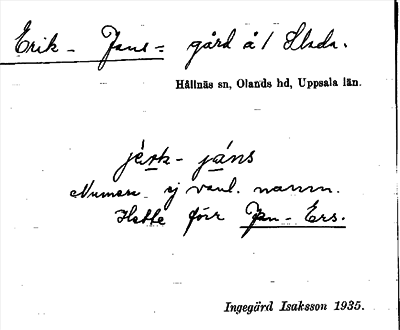 Erik - Jans = gård å 1 Slada.
Hållnäs sn, Olands hd, Uppsala län.
jèrk - jáns
Numera ej vanl. namn.
Hette förr Jan - Ers.
Ingegärd Isaksson 1935.